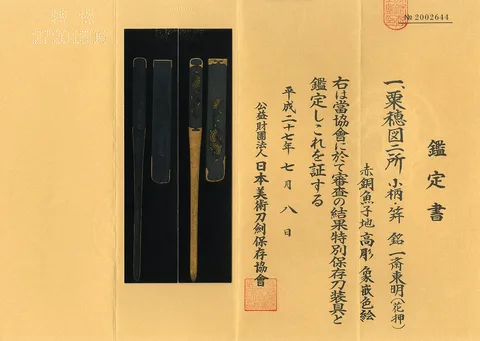 № 2002644
鑑定書
一、粟穂図二所 小柄・笄 銘 一斎東明(花押)
赤銅魚子地 高彫 象嵌色絵
右は當協會に於て審査の結果特別保存刀装具と
鑑定しこれを証する
平成二十七年 七月 八日
公益財團法人 日本美術刀剣保存協會